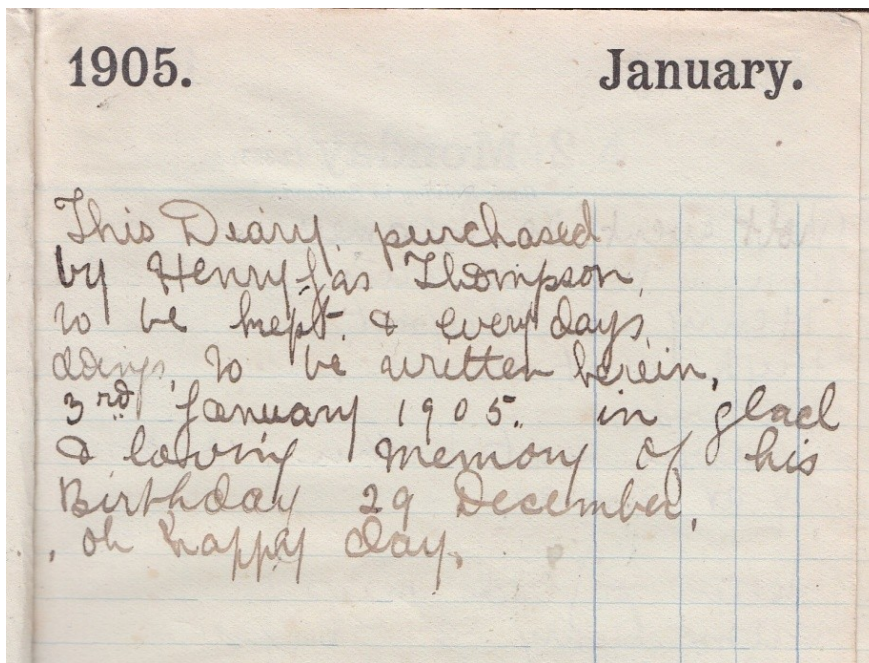 1905. January.
This Diary, purchased
by Henry Jas Thompson,
to be kept, & every days,
doings, to be written herein,
3rd January 1905. in glad
& loving memory of his
Birthday 29 December,
, oh happy day,